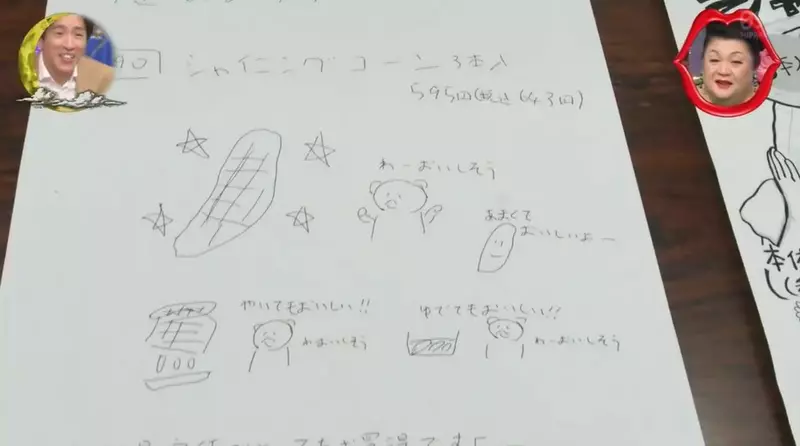 シャイニングコーン3本入
595円(税込643円)
わーおいしそう
あまくて
おいしいよー
やいてもおいしい!!
わおいしそう
ゆでてもおいしい!!
わーおいしそう
本体